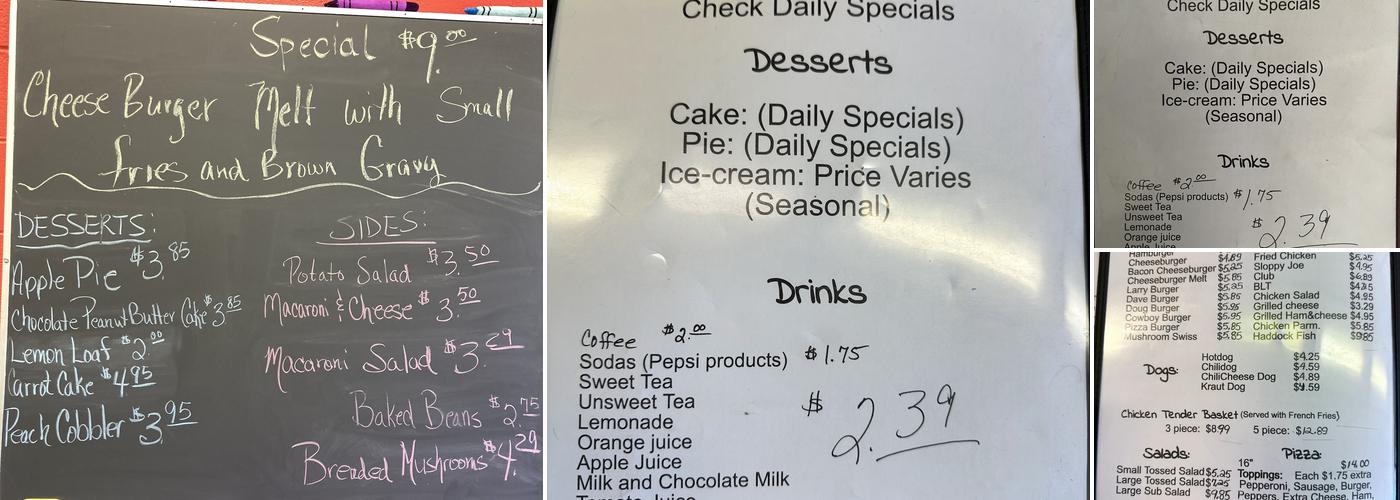 Special $9.00
Cheese Burger Melt with Small
fries and Brown Gravy
DESSERTS:
Apple Pie $3.85
Chocolate Peanut Butter Cake $3.85
Lemon Loaf $2.00
Carrot Cake $4.95
Peach Cobbler $3.95
SIDES:
Potato Salad $3.50
Macaroni & Cheese $3.50
Macaroni Salad $3.29
Baked Beans $2.75
Breaded Mushrooms $4.29
Check Daily Specials
Desserts
Cake: (Daily Specials)
Pie: (Daily Specials)
Ice-cream: Price Varies
(Seasonal)
Drinks
Coffee $2.00
Sodas (Pepsi products) $1.75
Sweet Tea
Unsweet Tea
$2.39
Lemonade
Orange juice
Apple Juice
Milk and Chocolate Milk
Tomato Juice
Check Daily Specials
Desserts
Cake: (Daily Specials)
Pie: (Daily Specials)
Ice-cream: Price Varies
(Seasonal)
Drinks
Coffee $2.00
Sodas (Pepsi products) $1.75
Sweet Tea
Unsweet Tea
$2.39
Lemonade
Orange juice
Apple Juice
Hamburger
Cheeseburger $4.89
Bacon Cheeseburger $5.25
Cheeseburger Melt $5.85
Larry Burger $5.25
Dave Burger $5.85
Doug Burger $5.95
Cowboy Burger $5.95
Pizza Burger $5.85
Mushroom Swiss $5.85
Fried Chicken $5.25
Sloppy Joe $4.95
Club $6.89
BLT
Chicken Salad $4.95
Grilled cheese $3.29
Grilled Ham&cheese $4.95
Chicken Parm. $5.85
Haddock Fish $9.85
Dogs:
Hotdog $4.25
Chilidog $4.59
ChiliCheese Dog $4.89
Kraut Dog $4.59
Chicken Tender Basket (Served with French Fries)
3 piece: $8.99 5 piece: $12.89
Salads:
Small Tossed Salad $5.25
Large Tossed Salad $7.25
Large Sub Salad $9.85
Pizza:
16" $14.00
Toppings: Each $1.75 extra
Pepperoni, Sausage, Burger,
Peppers, Extra Cheese, Ham,